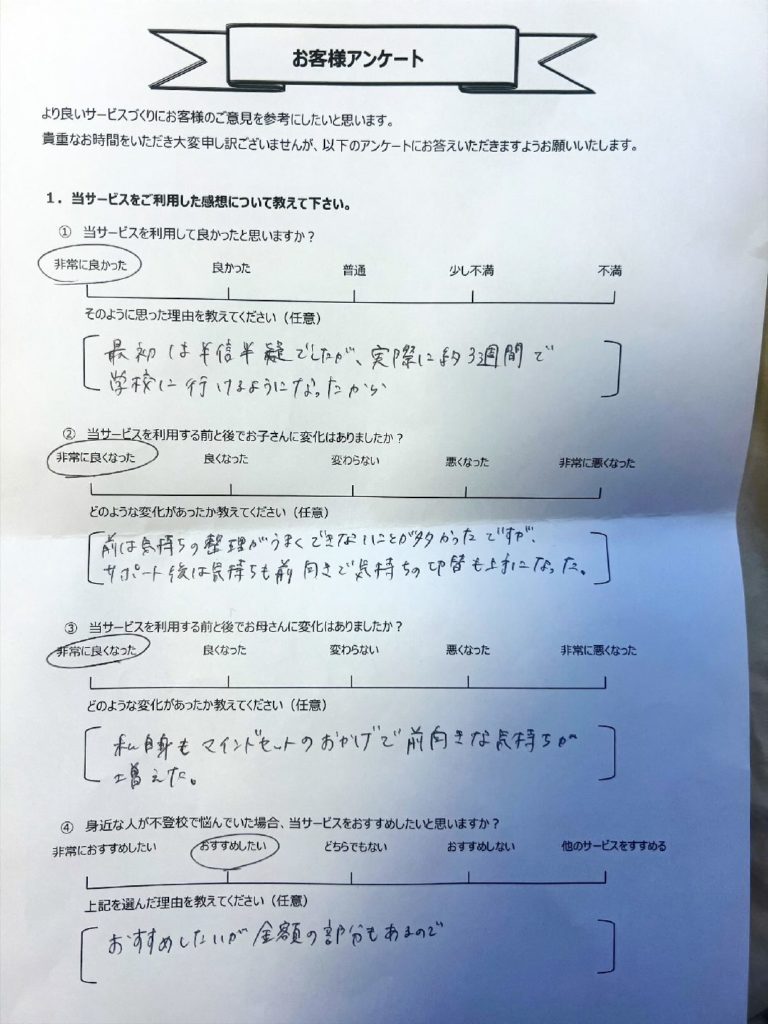 お客様アンケート
より良いサービスづくりにお客様のご意見を参考にしたいと思います。
貴重なお時間をいただき大変申し訳ございませんが、以下のアンケートにお答えいただきますようお願いいたします。
１．当サービスをご利用した感想について教えて下さい。
① 当サービスを利用して良かったと思いますか？
非常に良かった 良かった 普通 少し不満 不満
そのように思った理由を教えてください（任意）
最初は半信半疑でしたが、実際に約3週間で
学校に行けるようになったから
② 当サービスを利用する前と後でお子さんに変化はありましたか？
非常に良くなった 良くなった 変わらない 悪くなった 非常に悪くなった
どのような変化があったか教えてください（任意）
前は気持ちの整理がうまくできないことが多かったですが、
サポート後は気持ちも前向きで気持ちの切替も上手になった。
③ 当サービスを利用する前と後でお母さんに変化はありましたか？
非常に良くなった 良くなった 変わらない 悪くなった 非常に悪くなった
どのような変化があったか教えてください（任意）
私自身もマインドセットのおかげで前向きな気持ちが
増えた。
④ 身近な人が不登校で悩んでいた場合、当サービスをおすすめしたいと思いますか？
非常におすすめしたい おすすめしたい どちらでもない おすすめしない 他のサービスをすすめる
上記を選んだ理由を教えてください（任意）
おすすめしたいが金額の部分もあるので